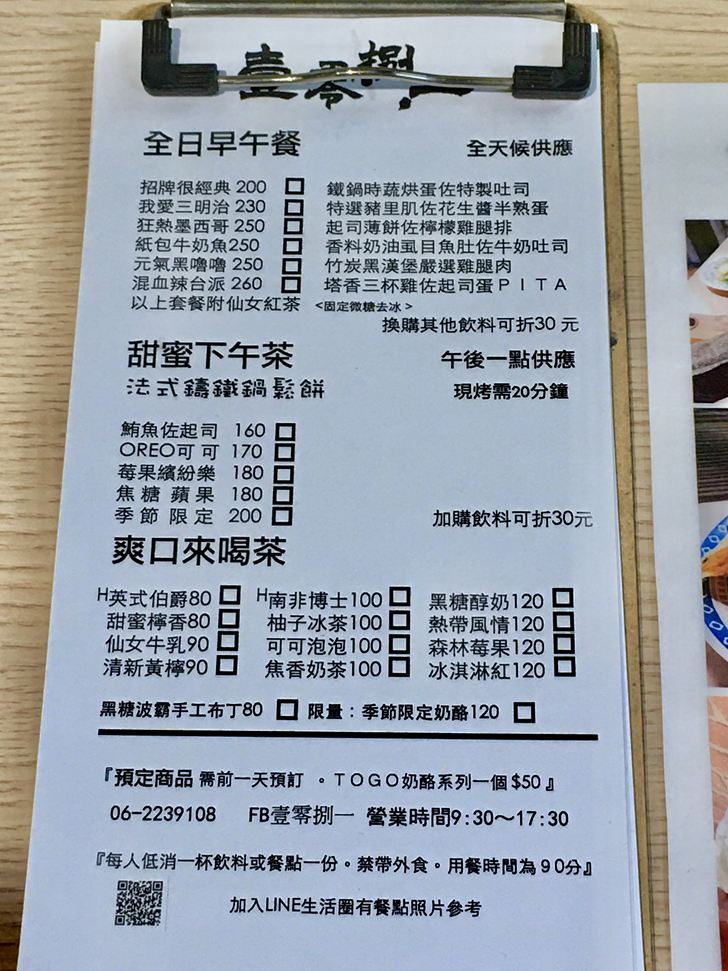 壹零捌一
全日早午餐 全天候供應
招牌很經典 200 □ 鐵鍋時蔬烘蛋佐特製吐司
我愛三明治 230 □ 特選豬里肌佐花生醬半熟蛋
狂熱墨西哥 250 □ 起司薄餅佐檸檬雞腿排
紙包牛奶魚250 □ 香料奶油虱目魚肚佐牛奶吐司
元氣黑嚕嚕 250 □ 竹炭黑漢堡嚴選雞腿肉
混血辣台派 260 □ 塔香三杯雞佐起司蛋PITA
以上套餐附仙女紅茶 <固定微糖去冰>
換購其他飲料可折30 元
甜蜜下午茶 午後一點供應
法式鑄鐵鍋鬆餅 現烤需20分鐘
鮪魚佐起司 160 □
OREO可可 170 □
莓果繽紛樂 180 □
焦糖蘋果 180 □
季節限定 200 □ 加購飲料可折30元
爽口來喝茶
H英式伯爵80 □ H南非博士100 □ 黑糖醇奶120 □
甜蜜檸香80 □ 柚子冰茶100 □ 熱帶風情120 □
仙女牛乳90 □ 可可泡泡100 □ 森林莓果120 □
清新黃檸90 □ 焦香奶茶100 □ 冰淇淋紅120 □
黑糖波霸手工布丁80 □ 限量：季節限定奶酪120 □
『預定商品 需前一天預訂 。TOGO奶酪系列一個 $50』
06-2239108 FB壹零捌一 營業時間9:30～17:30
『每人低消一杯飲料或餐點一份。禁帶外食。用餐時間為90分』
加入LINE生活圈有餐點照片參考